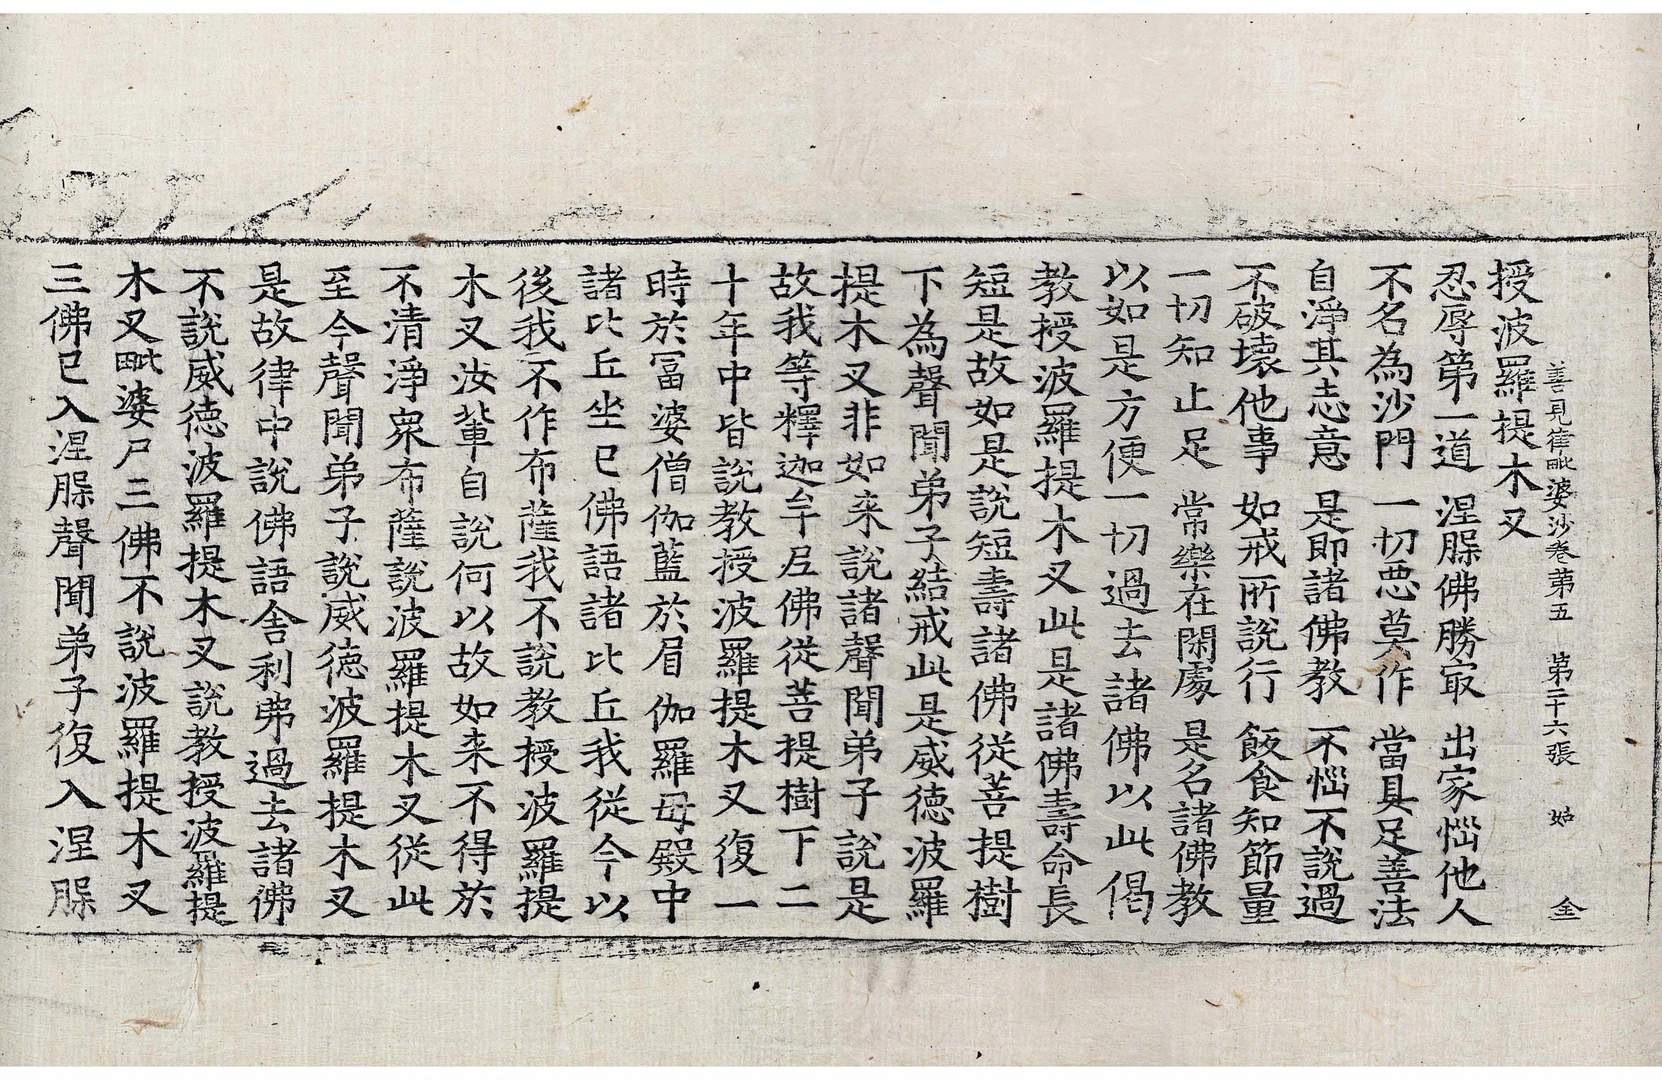 善見律毗婆沙卷第五　第二十六張　姑　金
授波羅提木叉
忍辱第一道　涅脲佛勝㝡　出家惱他人
不名為沙門　一切惡莫作　當具足善法
自淨其志意　是即諸佛教　不惱不說過
不破壞他事　如戒所說行　飯食知節量
一切知止足　常樂在閑處　是名諸佛教
以如是方便一切過去諸佛以此偈
教授波羅提木叉此是諸佛壽命長
短是故如是說短壽諸佛從菩提樹
下為聲聞弟子結戒此是威德波羅
提木叉非如来說諸聲聞弟子說是
故我等釋迦牟尼佛從菩提樹下二
十年中皆說教授波羅提木叉復一
時於冨婆僧伽藍於眉伽羅母殿中
諸比丘坐已佛語諸比丘我從今以
後我不作布薩我不說教授波羅提
木叉汝輩自說何以故如来不得於
不清淨衆布薩說波羅提木叉從此
至今聲聞弟子說威德波羅提木叉
是故律中說佛語舍利弗過去諸佛
不說威德波羅提木叉說教授波羅提
木叉毗婆尸三佛不說波羅提木叉
三佛已入涅脲聲聞弟子復入涅脲